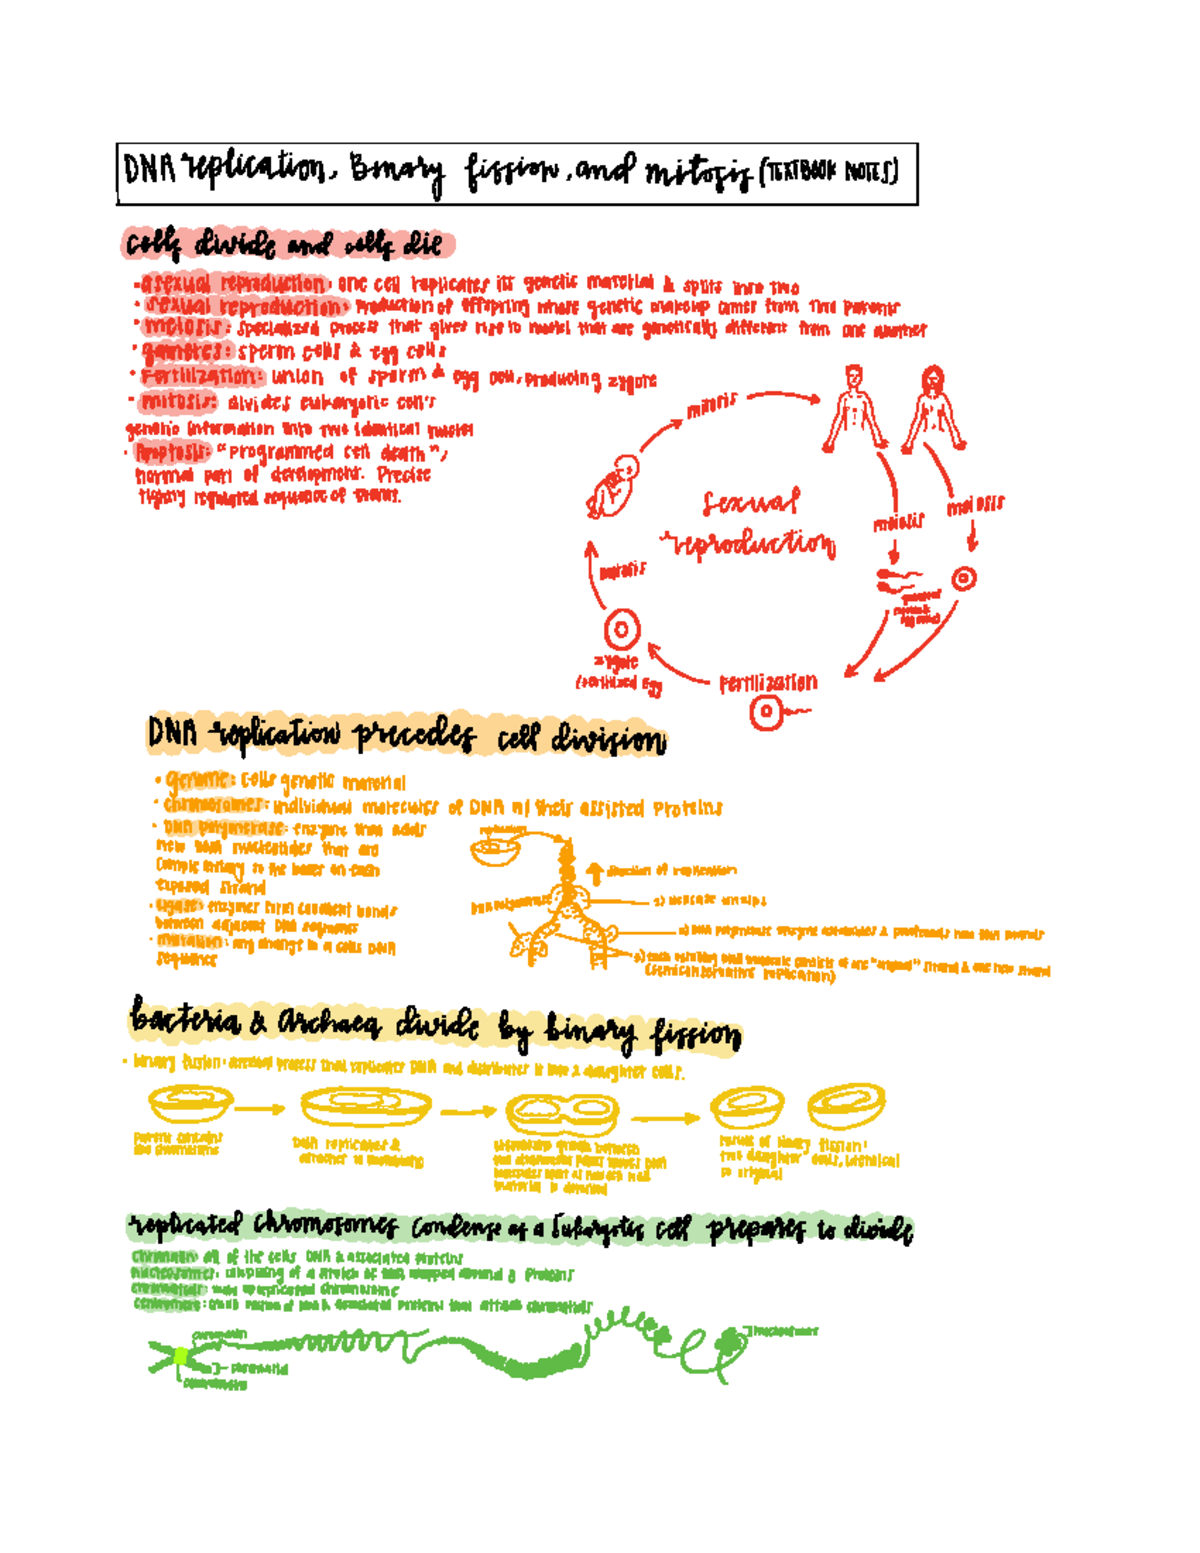 DNA replication, Binary fission, and mitosis (TEXTBOOK NOTES)
cells divide and cells die
-asexual reproduction: one cell replicates its genetic material & splits into two
• sexual reproduction: production of offspring whose genetic makeup comes from two parents
• meiosis: specialized process that gives rise to nuclei that are genetically different from one another
• gametes: sperm cells & egg cells
• Fertilization: union of sperm & egg cell, producing zygote
• mitosis: divides eukaryotic cell's
genetic information into two identical nuclei
• Apoptosis: "programmed cell death",
normal part of development. Precise
tightly regulated sequence of events.
mitosis
sexual
reproduction
meiosis
meiosis
mitosis
zygote
(fertilized egg
Fertilization
DNA replication precedes cell division
• genome: cells genetic material
• chromosomes: individual molecules of DNA w/ their assisted proteins
• DNA polymerase: enzyme that adds
new DNA nucleotides that are
complementary to the bases on each
exposed strand
• ligase: enzymes form covalent bonds
between adjacent DNA segments
• mutation: any change in a cells DNA
sequence
replication
direction of replication
DNA polymerase
(semiconservative replication)
bacteria & Archaea divide by binary fission
• binary fusion: asexual process that replicates DNA and distributes it into 2 daughter cells.
DNA replicates &
attaches to membrane
result of binary fission:
two daughter cells, identical
to original
replicated chromosomes condense as a Eukaryotic cell prepares to divide
chromatin: all of the cells DNA & associated proteins
nucleosomes: comprising of a stretch of DNA wrapped around 8 proteins
chromatid